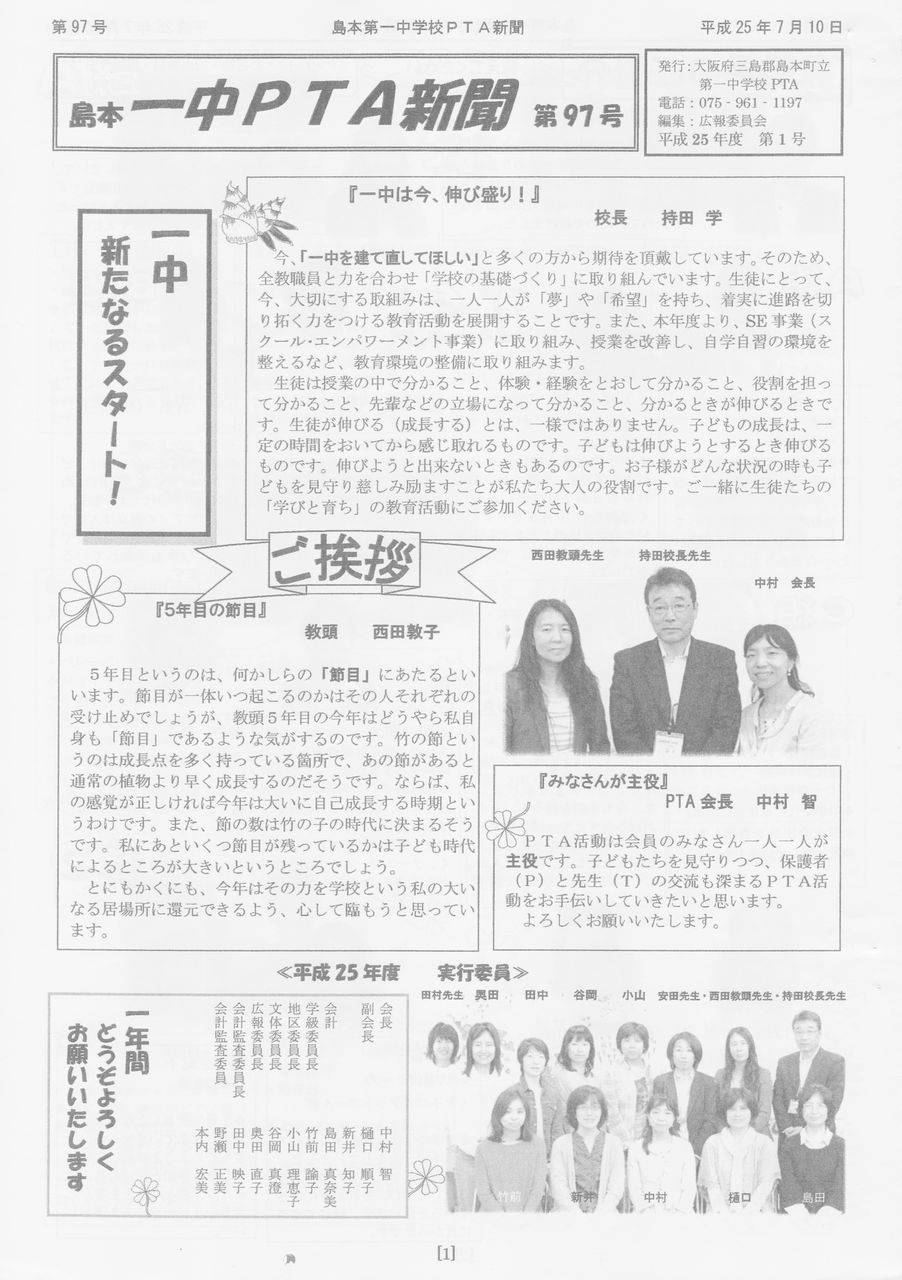 第97号 島本第一中学校PTA新聞 平成25年7月10日
島本 一中PTA新聞 第97号
発行：大阪府三島郡島本町立
第一中学校 PTA
電話：075‐961‐1197
編集：広報委員会
平成25年度 第1号
一中
新たなるスタート！
『一中は今、伸び盛り！』
校長 持田 学
今、「一中を建て直してほしい」と多くの方から期待を頂戴しています。そのため、
全教職員と力を合わせ「学校の基礎づくり」に取り組んでいます。生徒にとって、
今、大切にする取組みは、一人一人が「夢」や「希望」を持ち、着実に進路を切
り拓く力をつける教育活動を展開することです。また、本年度より、SE事業（ス
クール・エンパワーメント事業）に取り組み、授業を改善し、自学自習の環境を
整えるなど、教育環境の整備に取り組みます。
生徒は授業の中で分かること、体験・経験をとおして分かること、役割を担っ
て分かること、先輩などの立場になって分かること、分かるときが伸びるときで
す。生徒が伸びる（成長する）とは、一様ではありません。子どもの成長は、一
定の時間をおいてから感じ取れるものです。子どもは伸びようとするとき伸びる
ものです。伸びようと出来ないときもあるのです。お子様がどんな状況の時も子
どもを見守り慈しみ励ますことが私たち大人の役割です。ご一緒に生徒たちの
「学びと育ち」の教育活動にご参加ください。
ご挨拶
『5年目の節目』
教頭 西田敦子
５年目というのは、何かしらの「節目」にあたるとい
います。節目が一体いつ起こるのかはその人それぞれの
受け止めでしょうが、教頭５年目の今年はどうやら私自
身も「節目」であるような気がするのです。竹の節とい
うのは成長点を多く持っている箇所で、あの節があると
通常の植物より早く成長するのだそうです。ならば、私
の感覚が正しければ今年は大いに自己成長する時期とい
うわけです。また、節の数は竹の子の時代に決まるそう
です。私にあといくつ節目が残っているかは子ども時代
によるところが大きいというところでしょう。
とにもかくにも、今年はその力を学校という私の大い
なる居場所に還元できるよう、心して臨もうと思ってい
ます。
西田教頭先生 持田校長先生
中村 会長
『みなさんが主役』
PTA会長 中村 智
ＰＴＡ活動は会員のみなさん一人一人が
主役です。子どもたちを見守りつつ、保護者
（Ｐ）と先生（Ｔ）の交流も深まるＰＴＡ活
動をお手伝いしていきたいと思います。
よろしくお願いいたします。
≪平成25年度 実行委員≫
一年間
どうぞよろしく
お願いいたします
会長 中村 智
副会長 樋口 順子
新井 知子
会計 島田 真奈美
学級委員長 竹前 諭子
地区委員長 小山 理恵子
文体委員長 谷岡 真澄
広報委員長 奥田 直子
会計監査委員長 田中 映子
会計監査委員 野瀬 正美
本内 宏美
田村先生 奥田 田中 谷岡 小山 安田先生・西田教頭先生・持田校長先生
竹前 新井 中村 樋口 島田
[1]